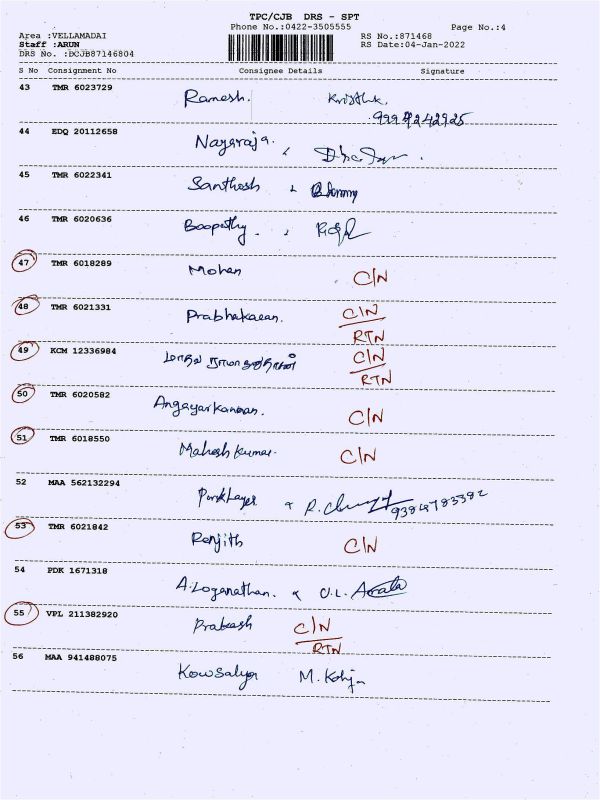 TPC/CJB DRS - SPT
Phone No.:0422-3505555 Page No.:4
Area :VELLAMADAI RS No.:871468
Staff :ARUN RS Date:04-Jan-2022
DRS No. :DCJB87146804
S No Consignment No Consignee Details Signature
43 TMR 6023729 Ramesh.
44 EDQ 20112658 Nagaraja.
45 TMR 6022341 Santhosh
46 TMR 6020636 Boopathy.
47 TMR 6018289 Mohan C/N
48 TMR 6021331 Prabhakaran. C/N
RTN
49 KCM 12336984 C/N
RTN
50 TMR 6020582 Angayarkannan. C/N
51 TMR 6018550 Mahesh Kumar. C/N
52 MAA 562132294
53 TMR 6021842 Renjith C/N
54 PDK 1671318 A.Loganathan.
55 VPL 211382920 Prakash C/N
RTN
56 MAA 941488075 Kowsalya